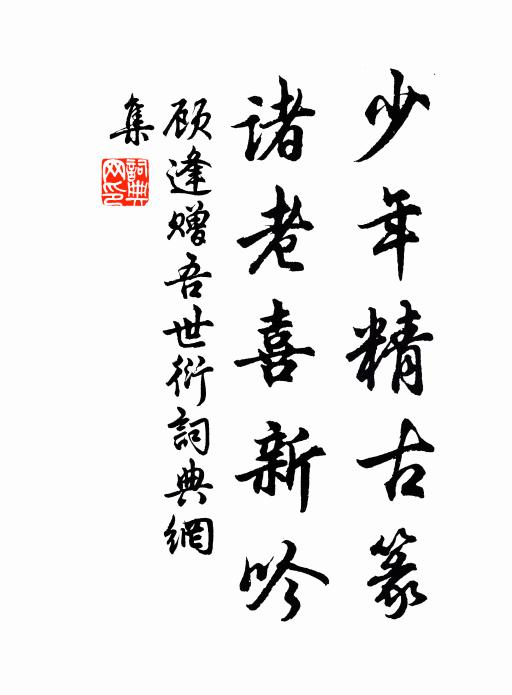 少年精古篆
诸老喜新吟
顾逢赠吾世衍詞典網
集
詞典网印